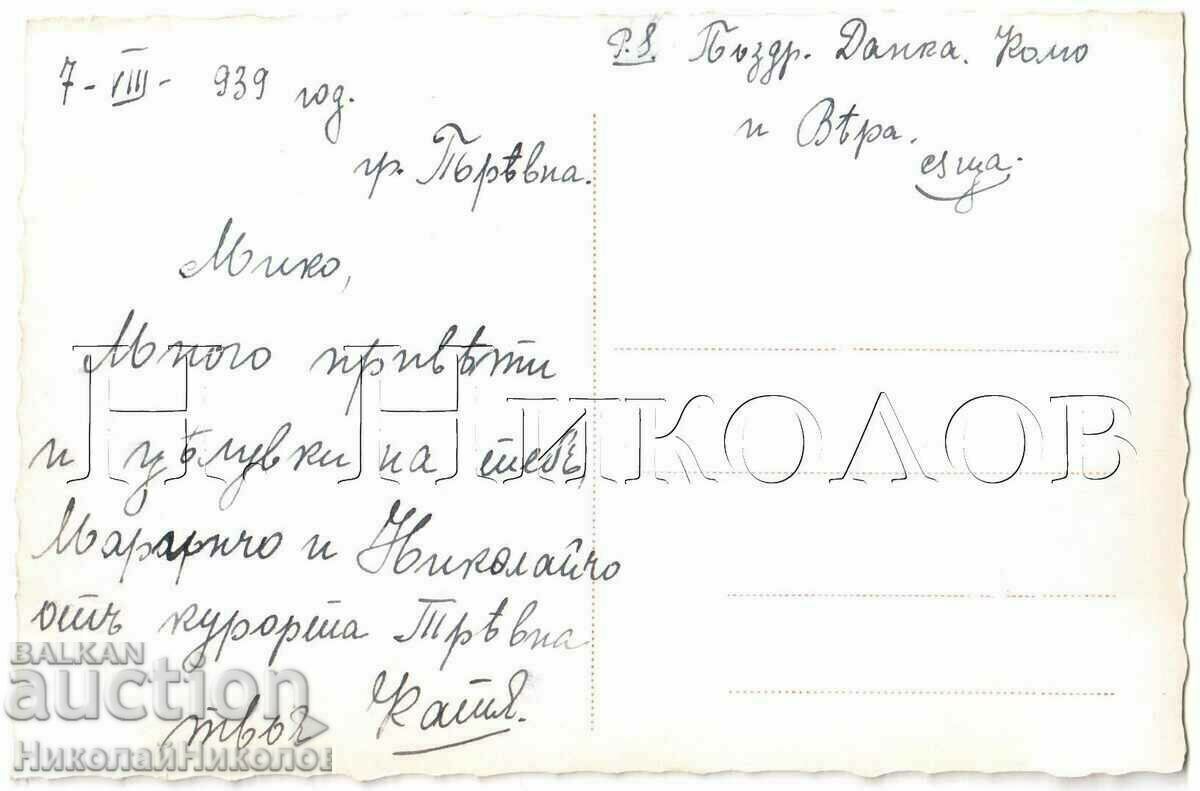 7-VIII- 939 год.
гр. Трѣвна.
Мико,
Много привѣти
и цѣлувки на тебе,
Маринчо и Николайчо
отъ курорта Трѣвна
твоя Катя.
P.S. Поздр. Данка. Комо
и Вѣра.
също.
Н. НИКОЛОВ
BALKAN
auction
НиколайНиколов